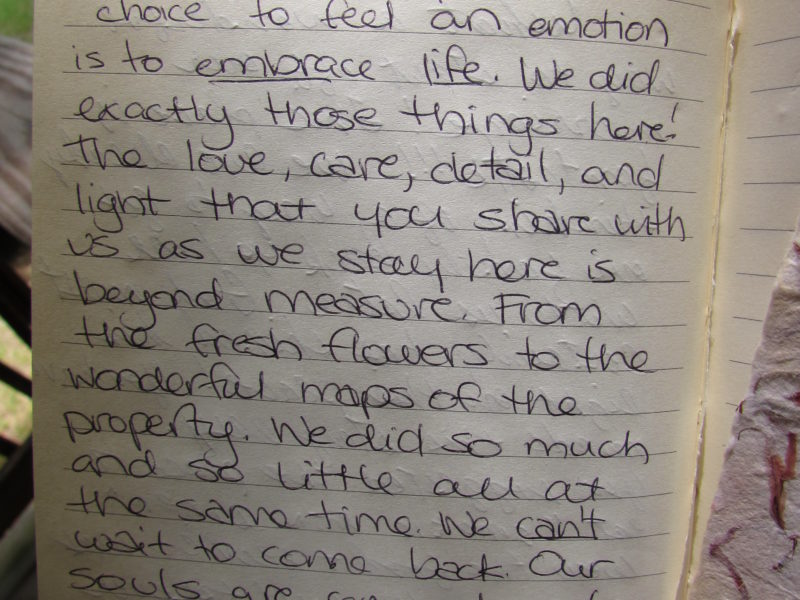 choice to feel an emotion
is to embrace life. We did
exactly those things here!
The love, care, detail, and
light that you share with
us as we stay here is
beyond measure. From
the fresh flowers to the
wonderful maps of the
property. We did so much
and so little all at
the same time. We can't
wait to come back. Our
souls are